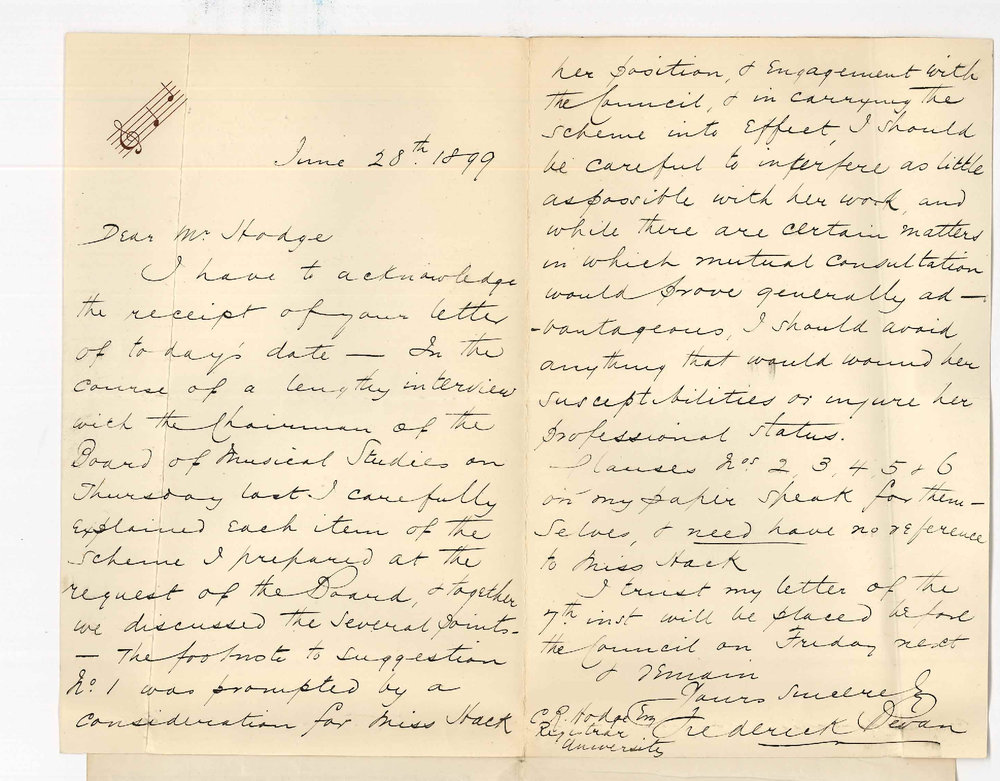 June 28th 1899
Dear Mr Hodge
I have to acknowledge
the receipt of your letter
of to day's date — In the
course of a lengthy interview
with the Chairman of the
Board of Musical Studies on
Thursday last I carefully
explained each item of the
scheme I prepared at the
request of the Board, & together
we discussed the several points.
— The footnote to suggestion
No. 1 was prompted by a
consideration for Miss Hack
her position, & Engagement with
the Council, & in carrying the
scheme into Effect, I should
be careful to interfere as little
as possible with her work, and
while there are certain matters
in which mutual consultation
would prove generally ad-
-vantageous, I should avoid
anything that would wound her
susceptibilities or injure her
professional status.
Clauses Nos 2, 3, 4, 5 & 6
on my paper speak for them-
selves, & need have no reference
to Miss Hack
I trust my letter of the
7th inst will be placed before
the Council on Friday next
& remain
Yours sincerely
Frederick Bevan
C. R. Hodge Esq
Registrar
University